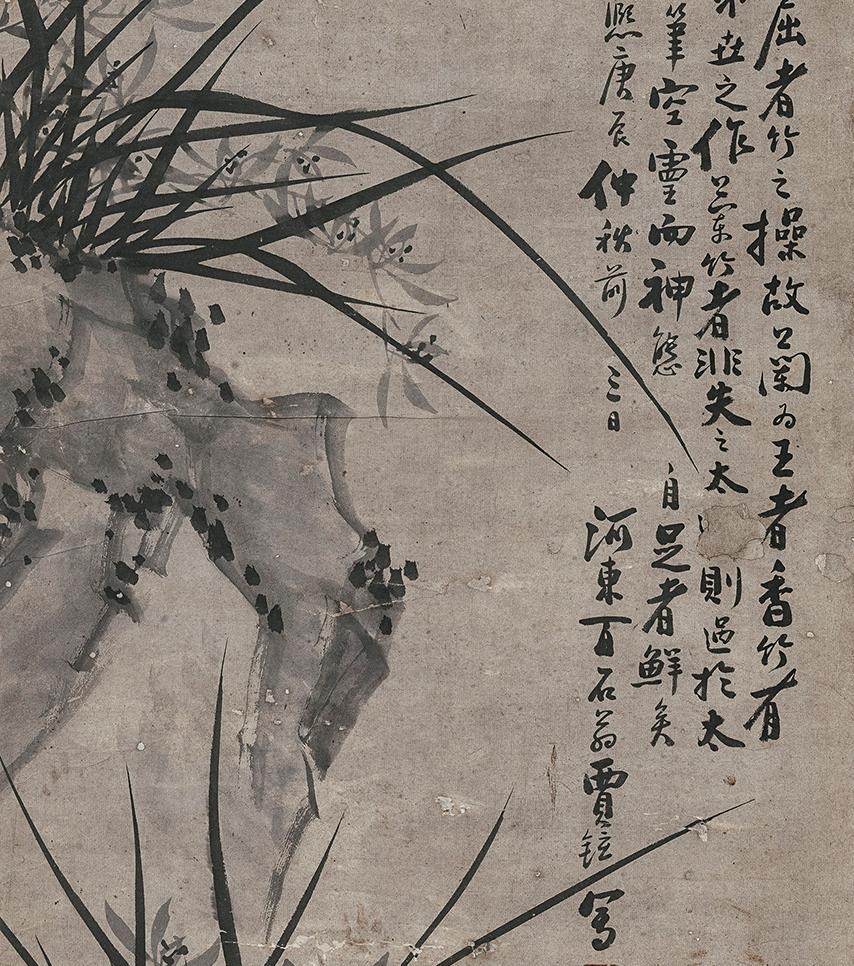 屈者竹之操故蘭為王者香竹有
世之作蘭竹者非失之太 則過於太
筆空靈而神態 自足者鮮矣
熙庚辰仲秋前三日 河東百石翁賈鉝寫